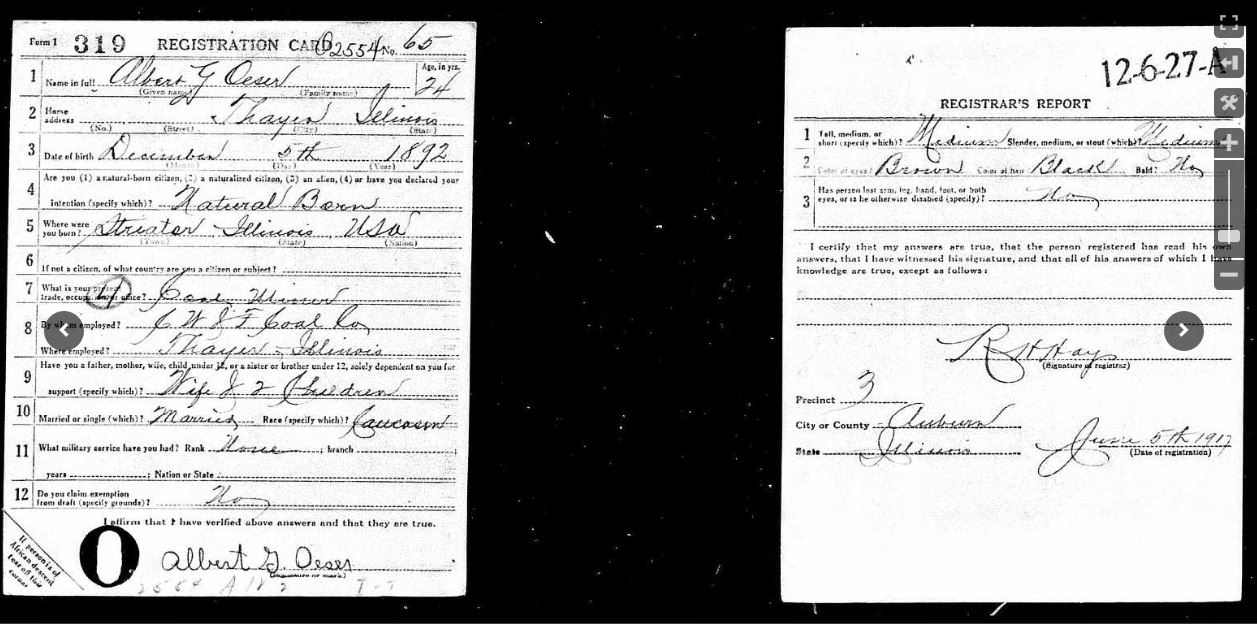 Form 1 319 REGISTRATION CARD 2554 No. 65
1 Name in full Albert G Oeser Age, in yrs. 24
(Given name) (Family name)
2 Home address Thayer Illinois
(No.) (Street) (City) (State)
3 Date of birth December 5th 1892
(Month) (Day) (Year)
Are you (1) a natural-born citizen, (2) a naturalized citizen, (3) an alien, (4) or have you declared your
4 intention (specify which)? Natural Born
5 Where were you born? Streator Illinois USA
(Town) (State) (Nation)
6 If not a citizen, of what country are you a citizen or subject?
7 What is your present trade, occupation, or office? 4 Coal Miner
8 By whom employed? C W & F Coal Co
Where employed? Thayer - Illinois
Have you a father, mother, wife, child under 12, or a sister or brother under 12, solely dependent on you for
9 support (specify which)? Wife & 2 Children
10 Married or single (which)? Married Race (specify which)? Caucasin
11 What military service have you had? Rank None ; branch ;
years ; Nation or State
12 Do you claim exemption from draft (specify grounds)? No
I affirm that I have verified above answers and that they are true.
O Albert G. Oeser
(Signature or mark)
If person is of
African descent
tear off this
corner
12-6-27-A
REGISTRAR'S REPORT
1 Tall, medium, or short (specify which)? Medium Slender, medium, or stout (which)? Medium
2 Color of eyes? Brown Color of hair Black Bald? No
3 Has person lost arm, leg, hand, foot, or both eyes, or is he otherwise disabled (specify)? No
I certify that my answers are true, that the person registered has read his own
answers, that I have witnessed his signature, and that all of his answers of which I have
knowledge are true, except as follows:
R H Hays
(Signature of registrar)
Precinct 3
City or County Auburn
State Illinois June 5th 1917
(Date of registration)